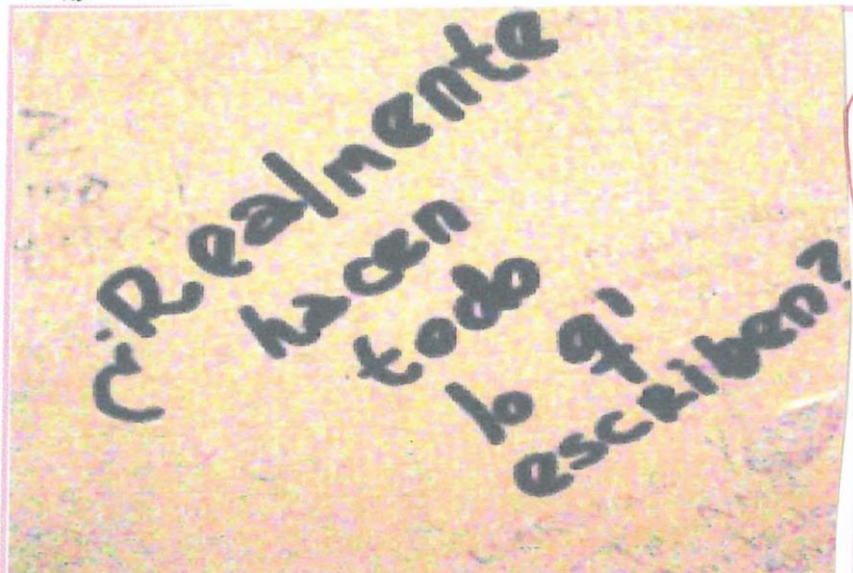 ¿Realmente
hacen
todo
lo q'
escriben?